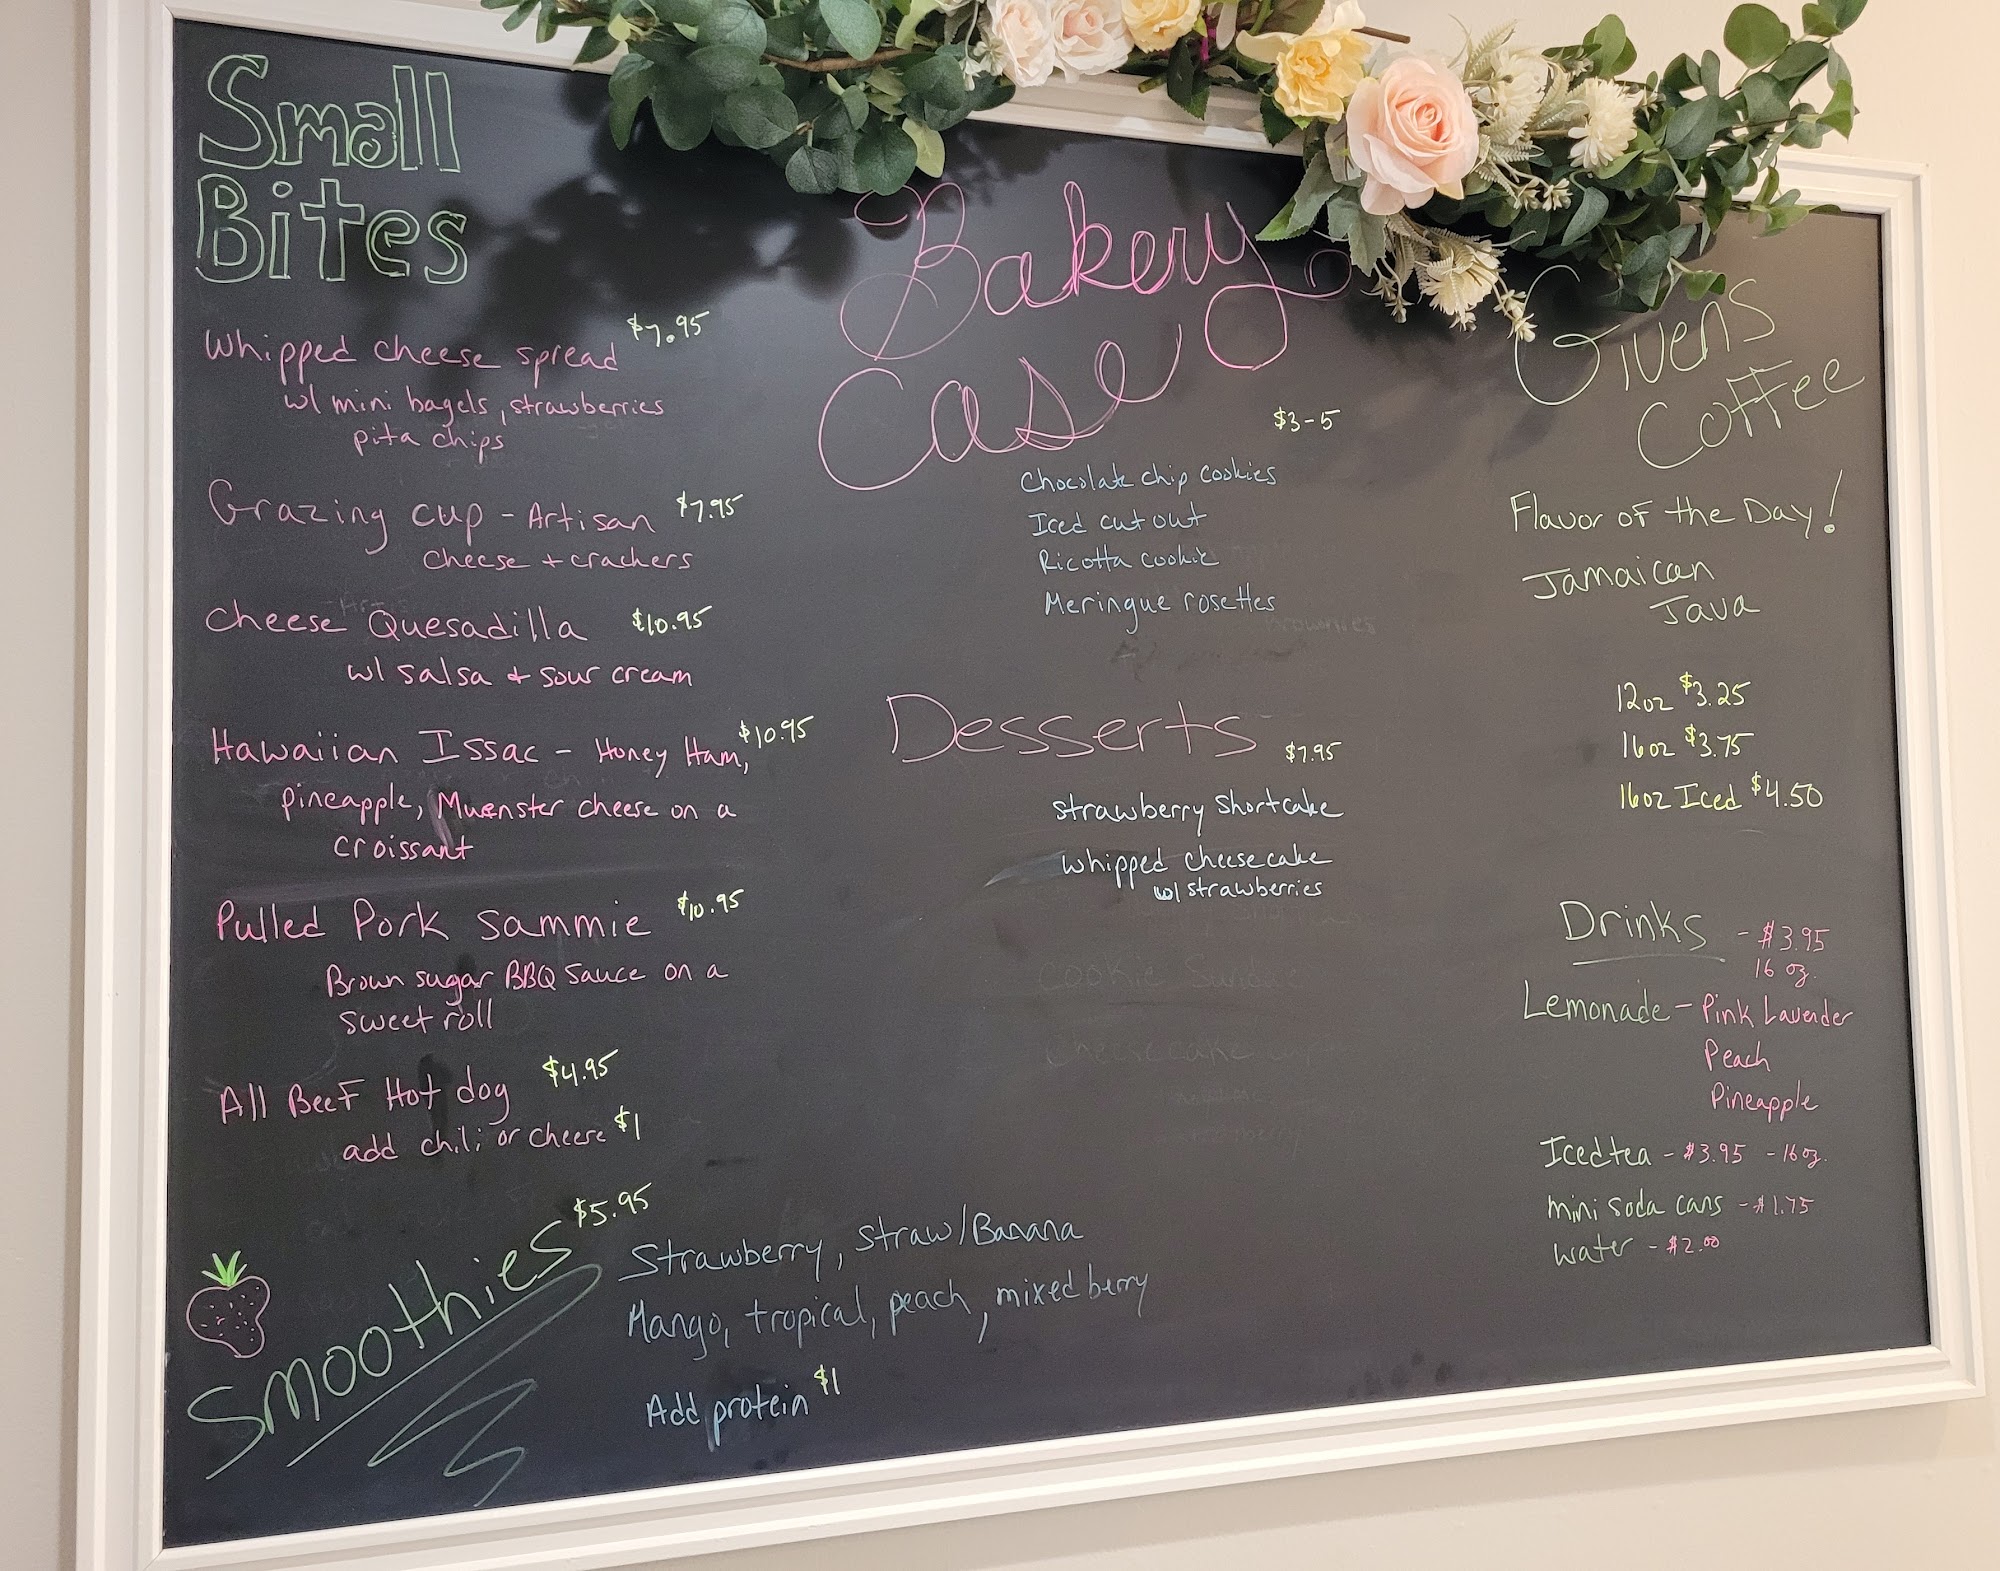 Small
Bites
Whipped cheese spread $7.95
w/ mini bagels, strawberries
pita chips
Grazing cup - Artisan $7.95
cheese + crackers
Cheese Quesadilla $10.95
w/ salsa + sour cream
Hawaiian Issac - Honey Ham, $10.95
pineapple, Muenster cheese on a
croissant
Pulled Pork Sammie $10.95
Brown sugar BBQ sauce on a
sweet roll
All Beef Hot dog $4.95
add chili or cheese $1
Smoothies $5.95
Strawberry, Straw/Banana
Mango, tropical, peach, mixed berry
Add protein $1
Bakery
Case
$3-5
Chocolate chip cookies
Iced cut out
Ricotta cookie
Meringue rosettes
Brownies
Desserts $7.95
Strawberry Shortcake
whipped cheesecake
w/ strawberries
Cookie
Cheesecake
Givens
Coffee
Flavor of the Day!
Jamaican
Java
12oz $3.25
16oz $3.75
16oz Iced $4.50
Drinks - $3.95
16 oz.
Lemonade - Pink Lavender
Peach
Pineapple
Iced tea - $3.95 - 16oz.
mini soda cans - $1.75
water - $2.00